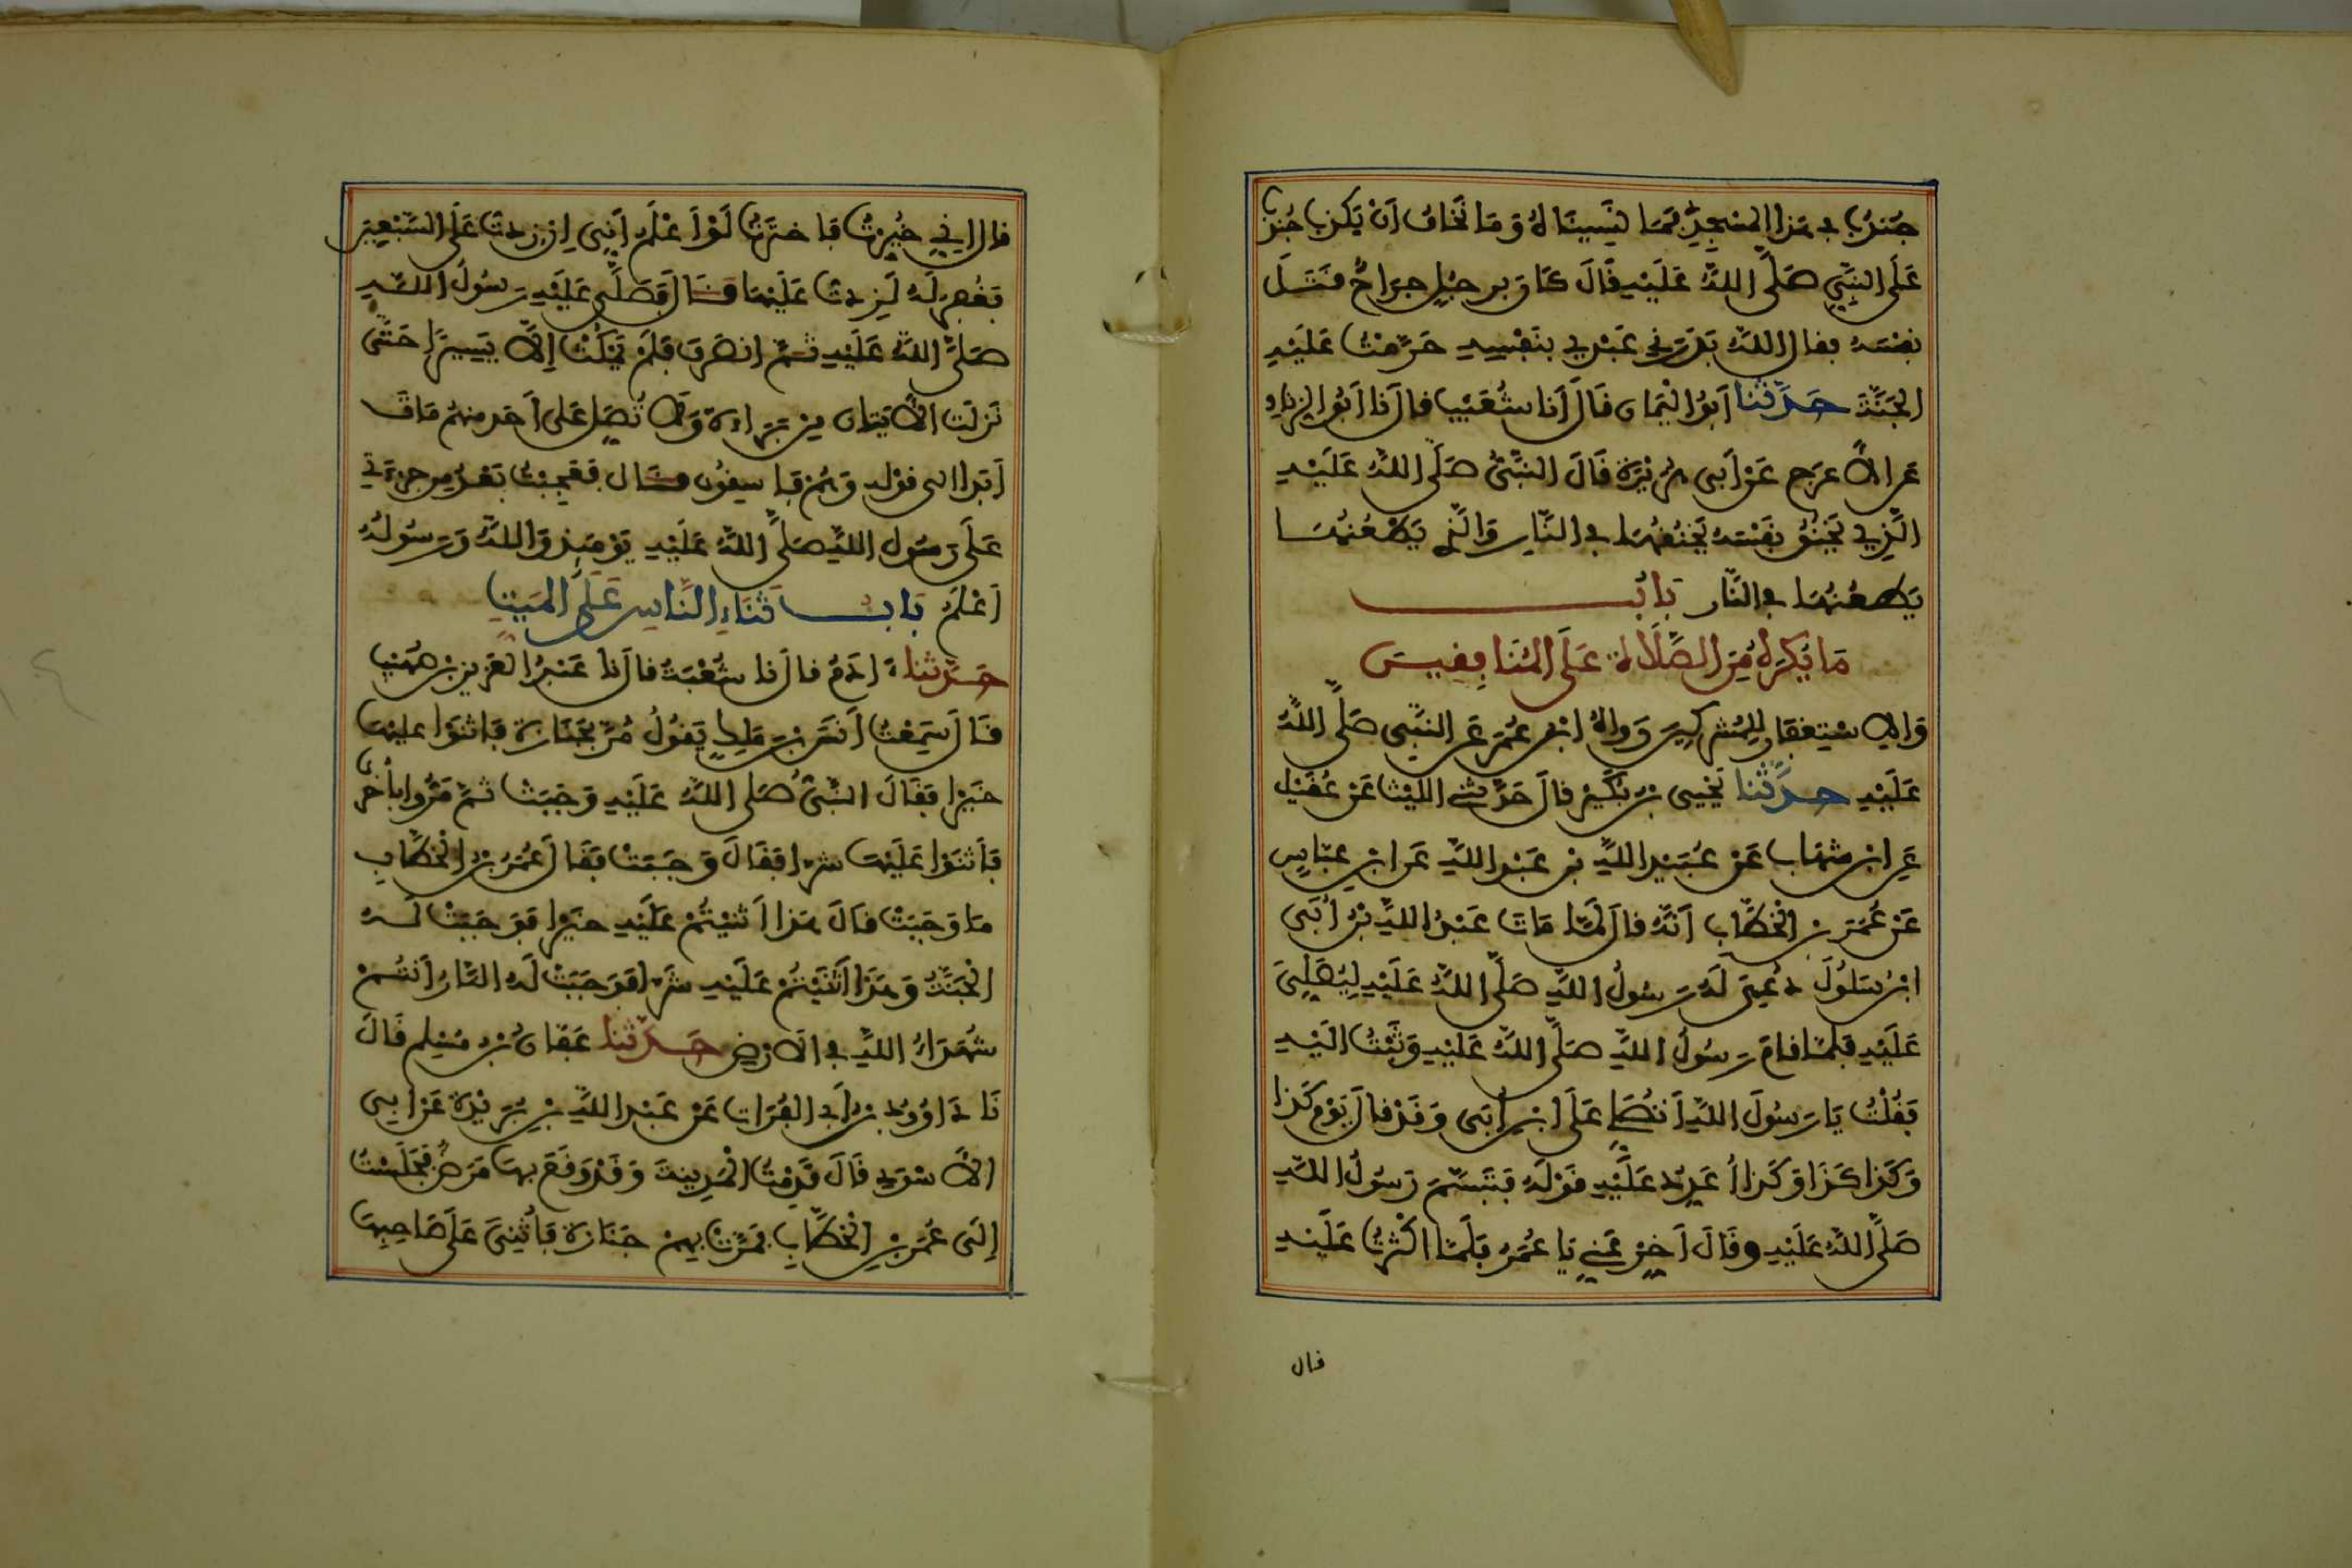 جُنْدُبٌ فِي هَذَا الْمَسْجِدِ فَمَا نَسِينَاهُ وَمَا نَخَافُ أَنْ يَكْذِبَ جُنْدُبٌ
عَلَى النَّبِيِّ صَلَّى اللَّهُ عَلَيْهِ قَالَ كَانَ بِرَجُلٍ جِرَاحٌ فَقَتَلَ
نَفْسَهُ فقال اللَّهُ بَدَرَنِي عَبْدِي بِنَفْسِهِ حَرَّمْتُ عَلَيْهِ
الْجَنَّةَ حَدَّثَنَا أَبُو الْيَمَانِ قَالَ أَنَا شُعَيْبٌ قال نَا أَبُو الزِّنَادِ
عَنِ الْأَعْرَجِ عَنْ أَبِي هُرَيْرَةَ قَالَ النَّبِيُّ صَلَّى اللَّهُ عَلَيْهِ
الَّذِي يَخْنُقُ نَفْسَهُ يَخْنُقُهَا فِي النَّارِ وَالَّذِي يَطْعُنُهَا
يَطْعُنُهَا فِي النَّارِ بَابُ
مَا يُكْرَهُ مِنَ الصَّلَاةِ عَلَى الْمُنَافِقِينَ
وَالِاسْتِغْفَارِ لِلْمُشْرِكِينَ رَوَاهُ ابْنُ عُمَرَ عَنِ النَّبِيِّ صَلَّى اللَّهُ
عَلَيْهِ حَدَّثَنَا يَحْيَى بْنُ بُكَيْرٍ قَالَ حَدَّثَنِي اللَّيْثُ عَنْ عُقَيْلٍ
عَنِ ابْنِ شِهَابٍ عَنْ عُبَيْدِ اللَّهِ بْنِ عَبْدِ اللَّهِ عَنِ ابْنِ عَبَّاسٍ
عَنْ عُمَرَ بْنِ الْخَطَّابِ أَنَّهُ قَالَ لَمَّا مَاتَ عَبْدُ اللَّهِ بْنُ أُبَيٍّ
ابْنُ سَلُولَ دُعِيَ لَهُ رَسُولُ اللَّهِ صَلَّى اللَّهُ عَلَيْهِ لِيُصَلِّيَ
عَلَيْهِ فَلَمَّا قَامَ رَسُولُ اللَّهِ صَلَّى اللَّهُ عَلَيْهِ وَثَبْتُ إِلَيْهِ
فَقُلْتُ يَا رَسُولَ اللَّهِ أَتُصَلِّي عَلَى ابْنِ أُبَيٍّ وَقَدْ قَالَ يَوْمَ كَذَا
وَكَذَا كَذَا وَكَذَا أُعَدِّدُ عَلَيْهِ قَوْلَهُ فَتَبَسَّمَ رَسُولُ اللَّهِ
صَلَّى اللَّهُ عَلَيْهِ وَقَالَ أَخِّرْ عَنِّي يَا عُمَرُ فَلَمَّا أَكْثَرْتُ عَلَيْهِ
قال
قال إِنِّي خُيِّرْتُ فَاخْتَرْتُ لَوْ أَعْلَمُ أَنِّي إِنْ زِدْتُ عَلَى السَّبْعِينَ
فَغُفِرَ لَهُ لَزِدْتُ عَلَيْهَا قَالَ فَصَلَّى عَلَيْهِ رَسُولُ اللَّهِ
صَلَّى اللَّهُ عَلَيْهِ ثُمَّ انْصَرَفَ فَلَمْ يَمْكُثْ إِلَّا يَسِيرًا حَتَّى
نَزَلَتِ الْآيَتَانِ مِنْ بَرَاءَةَ وَلَا تُصَلِّ عَلَى أَحَدٍ مِنْهُمْ مَاتَ
أَبَدًا إلى قوله وَهُمْ فَاسِقُونَ قَالَ فَعَجِبْتُ بَعْدُ مِنْ جُرْأَتِي
عَلَى رَسُولِ اللَّهِ صَلَّى اللَّهُ عَلَيْهِ يَوْمَئِذٍ وَاللَّهُ وَرَسُولُهُ
أَعْلَمُ بَابُ ثَنَاءِ النَّاسِ عَلَى الْمَيِّتِ
حَدَّثَنَا ءَادَمُ قال نَا شُعْبَةُ قال نَا عَبْدُ الْعَزِيزِ بْنُ صُهَيْبٍ
قَالَ سَمِعْتُ أَنَسَ بْنَ مَلِكٍ يَقُولُ مُرَّ بِجَنَازَةٍ فَأَثْنَوْا عليها
خَيْرًا فَقَالَ النَّبِيُّ صَلَّى اللَّهُ عَلَيْهِ وَجَبَتْ ثُمَّ مَرُّوا بِأُخْرَى
فَأَثْنَوْا عَلَيْهَا شَرًّا فَقَالَ وَجَبَتْ فَقَالَ عُمَرُ بْنُ الْخَطَّابِ
مَا وَجَبَتْ قَالَ هَذَا أَثْنَيْتُمْ عَلَيْهِ خَيْرًا فَوَجَبَتْ لَهُ
الْجَنَّةُ وَهَذَا أَثْنَيْتُمْ عَلَيْهِ شَرًّا فَوَجَبَتْ لَهُ النَّارُ أَنْتُمْ
شُهَدَاءُ اللَّهِ فِي الْأَرْضِ حَدَّثَنَا عَفَّانُ بْنُ مُسْلِمٍ قَالَ
نَا دَاوُودُ بْنُ أَبِي الْفُرَاتِ عَنْ عَبْدِ اللَّهِ بْنِ بُرَيْدَةَ عَنْ أَبِي
الْأَسْوَدِ قَالَ قَدِمْتُ الْمَدِينَةَ وَقَدْ وَقَعَ بِهَا مَرَضٌ فَجَلَسْتُ
إِلَى عُمَرَ بْنِ الْخَطَّابِ فَمَرَّتْ بِهِمْ جَنَازَةٌ فَأُثْنِيَ عَلَى صَاحِبِهَا